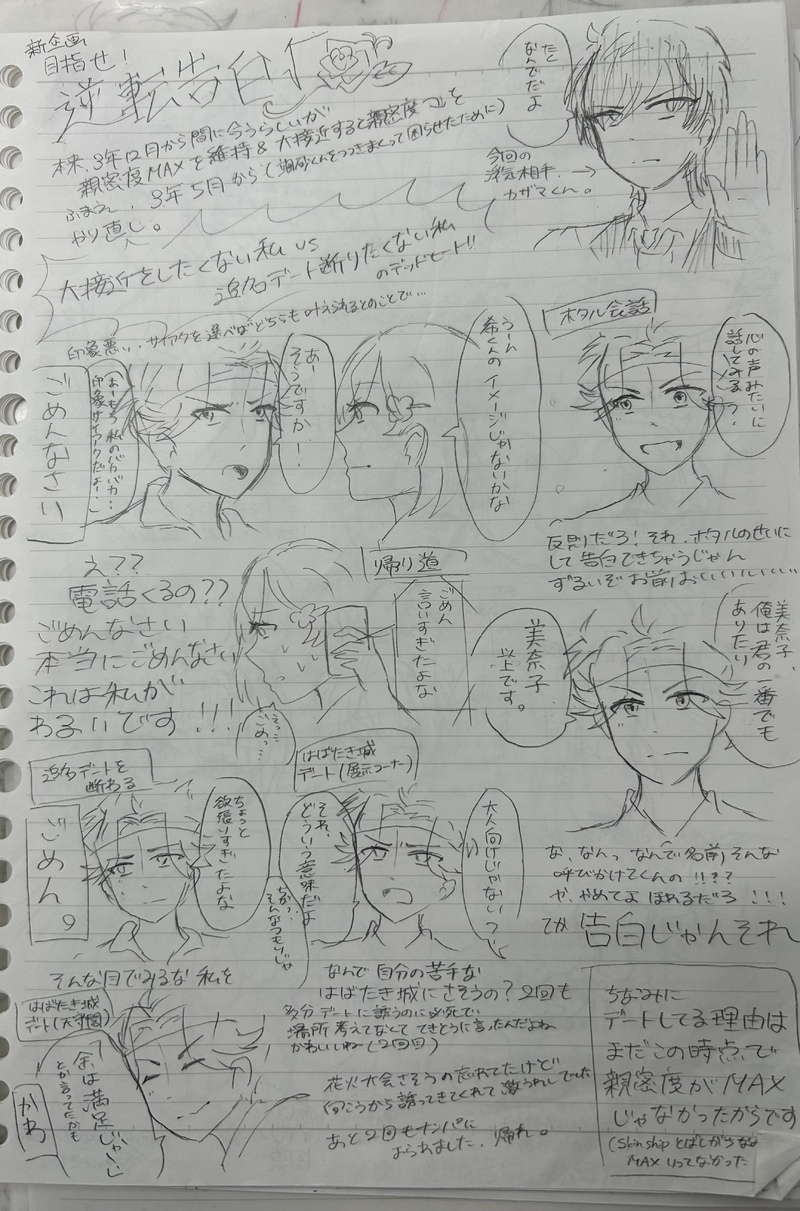 新企画
目指せ!
逆転告白
本来、3年12月から間に合うらしいが
親密度MAXを維持&大接近すると親密度つʓを
ふまえ、3年5月から(
やり直し。
たく
なんでだよ
今回の
浮気相手→
カザマくん。
大接近をしたくない私 VS
追加デート断りたくない私
のデッドヒート!!
印象悪い、サイアクを選べばどちらも叶えられるとのことで…
うーん
希くんのイメージじゃないかな
あー
そうですかー!
(あーもう私のバカバカ…
印象サイアクだよー)
ごめんなさい
ホタル会話
心の声みたいに
話してみるっ?
反則だろ!それ、ホタルのせいに
して告白できちゃうじゃん
ずるいぞお前おいいいいいい
え???
電話くるの??
ごめんなさい
本当にごめんなさい
これは私が
わるいです!!!
帰り道
ごめん
言いすぎたよな
ごめっ…
美奈子
以上です。
美奈子、
俺は君の一番でも
ありたい
な、なんっ なんで名前そんな
呼びかけてくんの!!??
や、やめてよ ほれるだろ!!!
てか 告白じゃんそれ
追加デートを
断わる
ちょっと
欲張りすぎたよな
ごめん。
そんな目でみるな 私を
はばたき城
デート(展示コーナー)
大人向けじゃないっ…
それ、
どういう意味だよ
ちがっ…
そんなつもりじゃ
なんで 自分の苦手な
はばたき城にさそうの?2回も
多分デートに誘うのに必死で
場所 考えてなくて てきとうに言ったんだよね
かわいいね(2回目)
花火大会さそうの忘れてたけど
向こうから誘ってきてくれて 激うれしでした
あと2回もナンパに
よられました、帰れ。
はばたき城
デート(天守閣)
「余は満足じゃ…」
とか言ってたかも
かわ
ちなみに
デートしてる理由は
まだこの時点で
親密度がMAX
じゃなかったからです
MAXいってなかった